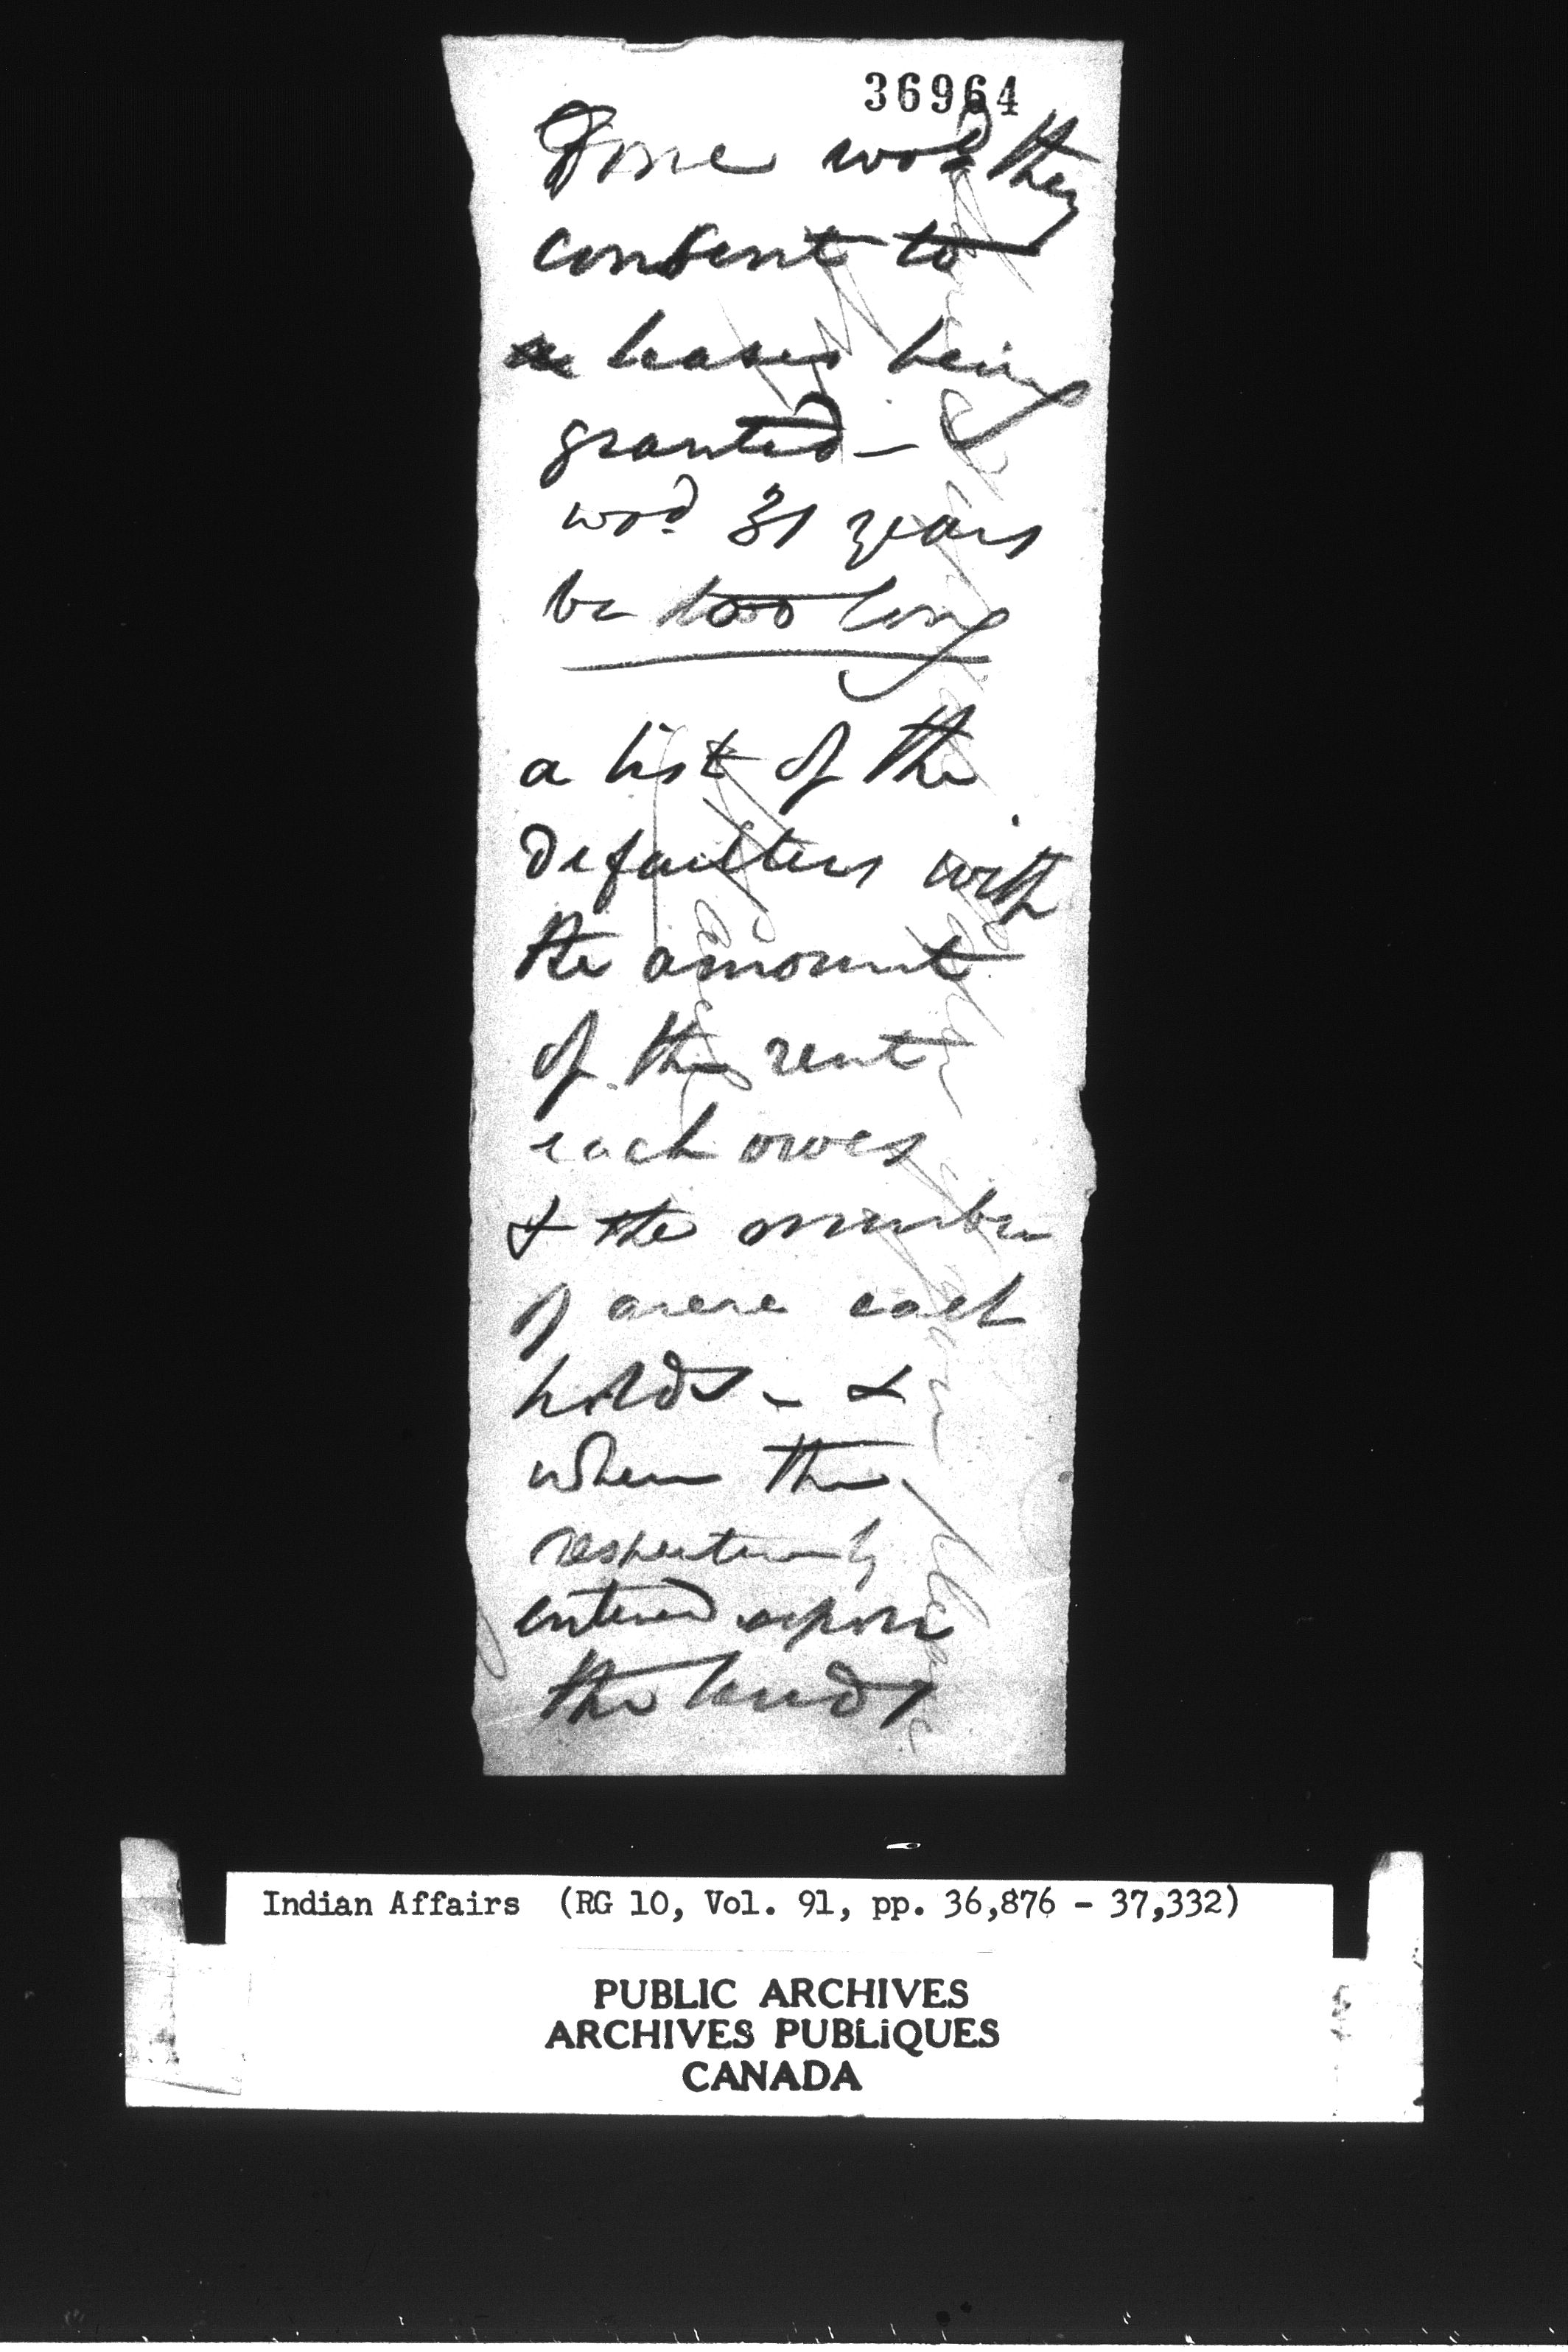 36964
wod they
consent to
leases being
granted —
wod 31 years
be too long
a list of the
Defaulters with
the amount
of the rent
each owes
& the number
of acres each
holds - &
when they
respectively
entered upon
the lands
Indian Affairs (RG 10, Vol. 91, pp. 36,876 - 37,332)
PUBLIC ARCHIVES
ARCHIVES PUBLiQUES
CANADA